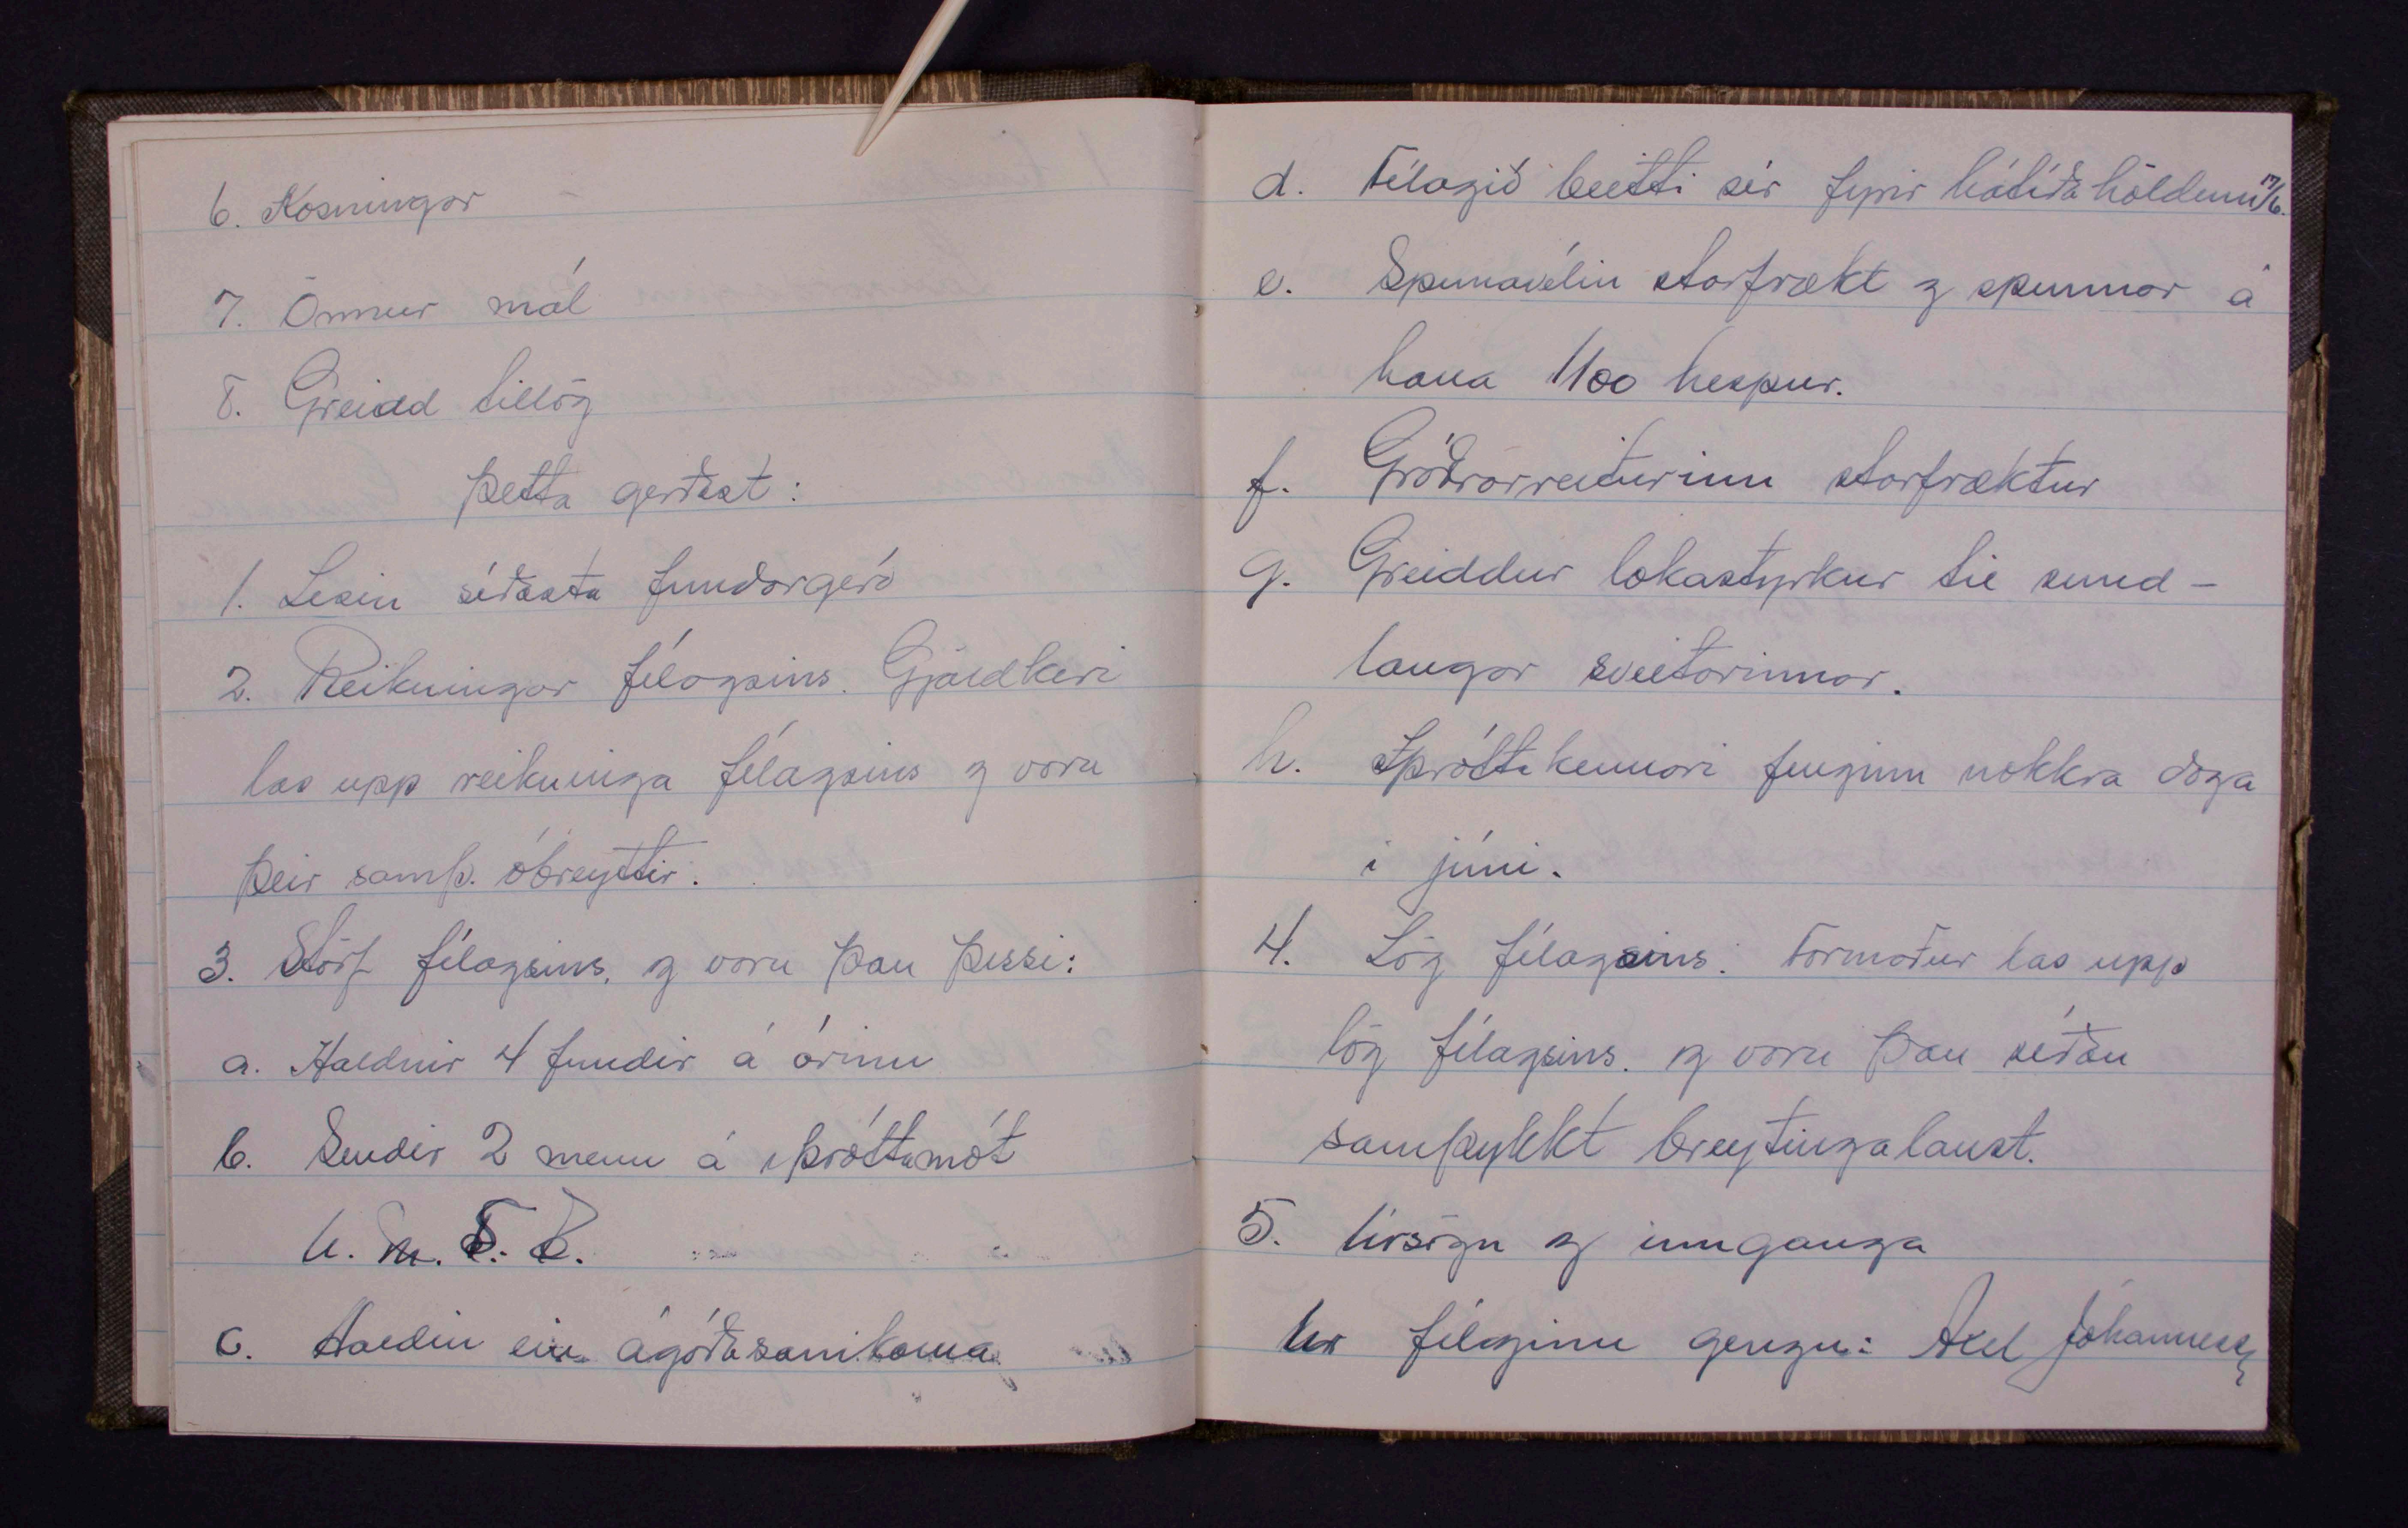 6. Kosningar
7. Önnur mál
8. Greidd tillög
Þetta gerðist:
1. Lesin síðasta fundargerð
2. Reikningar félagsins. Gjaldkeri
las upp reikninga félagsins og voru
þeir samþ. óbreyttir.
3. Störf félagsins, og voru þau þessi:
a. Haldnir 4 fundir á árinu
b. Sendir 2 menn á íþróttamót
U. M. S. B.
c. Haldin ein ágóðasamkoma
d. Félagið beitti sér fyrir hátíðahöldum 17/6.
e. Spunavélin starfrækt og spunnar á
hana 1100 hespur.
f. Gróðrarreiturinn starfræktur
g. Greiddur lokastyrkur til sund-
laugar sveitarinnar.
h. Íþróttakennari fenginn nokkra daga
í júní.
4. Lög félagsins. Formaður las upp
lög félagsins. og voru þau síðan
samþykkt breytingalaust.
5. Úrsögn og innganga
Úr félaginu gengu: Axel Jóhanness